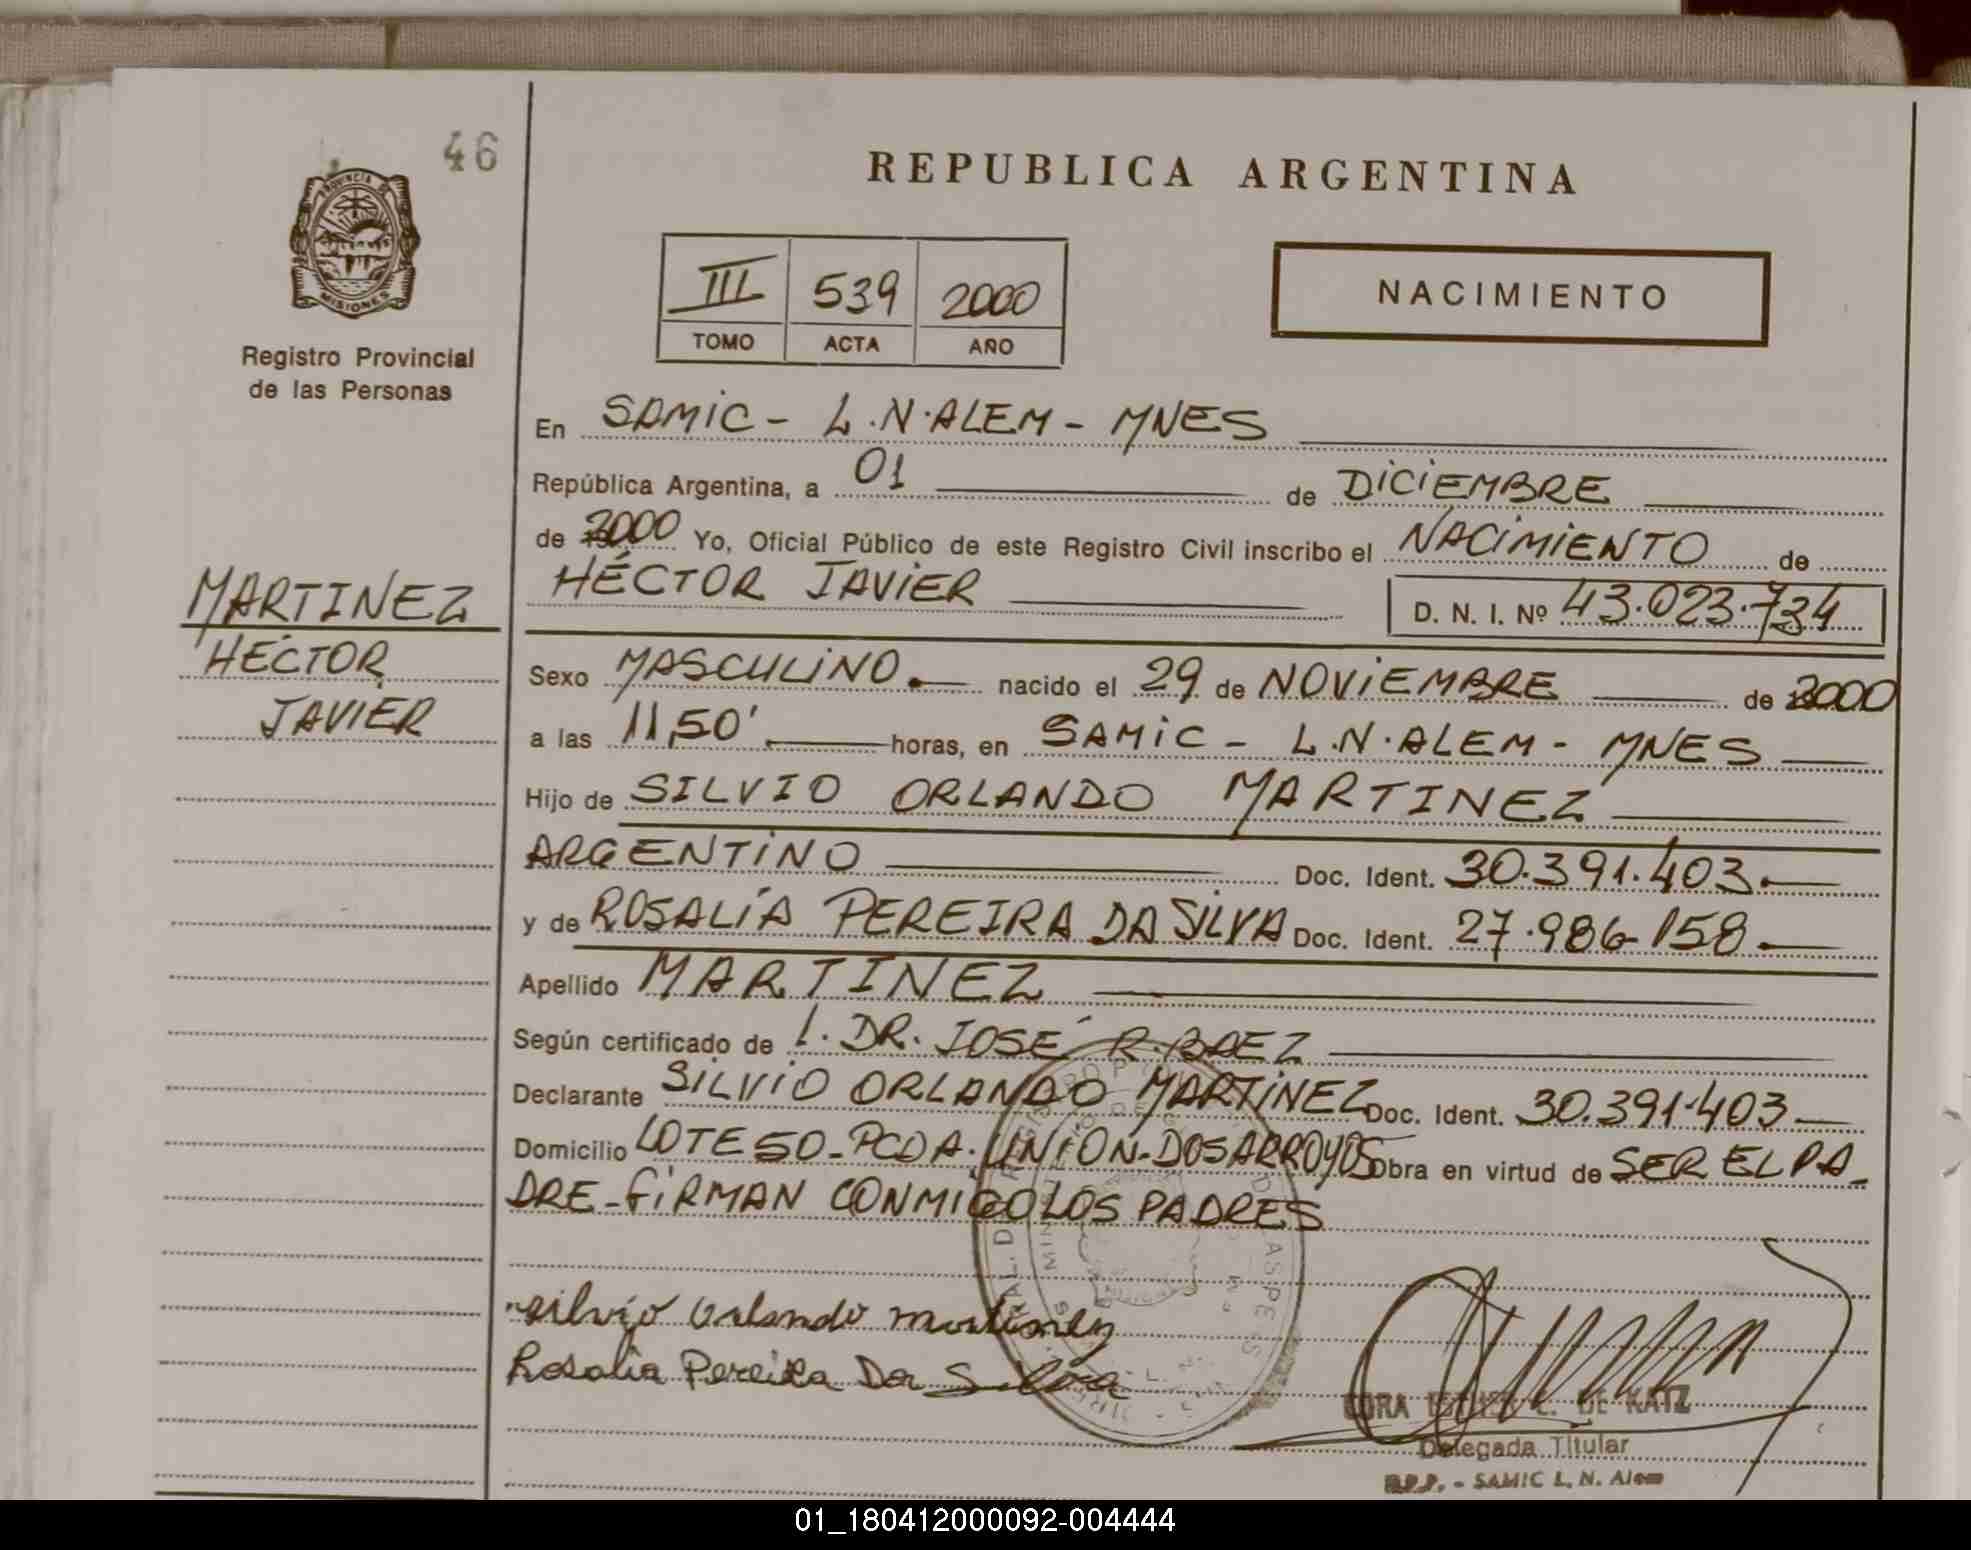 46
REPUBLICA ARGENTINA
PROVINCIA DE
MISIONES
III 539 2000
TOMO ACTA AÑO
NACIMIENTO
Registro Provincial
de las Personas
En SAMIC - L.N.ALEM - MNES
República Argentina, a 01 de DICIEMBRE
de 2000 Yo, Oficial Público de este Registro Civil inscribo el NACIMIENTO de
HÉCTOR JAVIER D. N. I. Nº 43.023.734
MARTINEZ
HÉCTOR
JAVIER
Sexo MASCULINO.— nacido el 29 de NOVIEMBRE de 2000
a las 11,50' horas, en SAMIC - L.N.ALEM - MNES
Hijo de SILVIO ORLANDO MARTINEZ
ARGENTINO Doc. Ident. 30.391.403.—
y de ROSALÍA PEREIRA DA SILVA Doc. Ident. 27.986.158.—
Apellido MARTINEZ
Según certificado de I. DR. JOSÉ R. BAEZ
Declarante SILVIO ORLANDO MARTINEZ Doc. Ident. 30.391.403—
Domicilio LOTE 50-PCDA.UNION-DOS ARROYOS Obra en virtud de SER EL PA-
DRE-FIRMAN CONMIGO LOS PADRES
Silvio Orlando Martinez
Rosalia Pereira Da Silva
DE KATZ
Delegada Titular
R.P.P. - SAMIC L. N. Alem
01_180412000092-004444